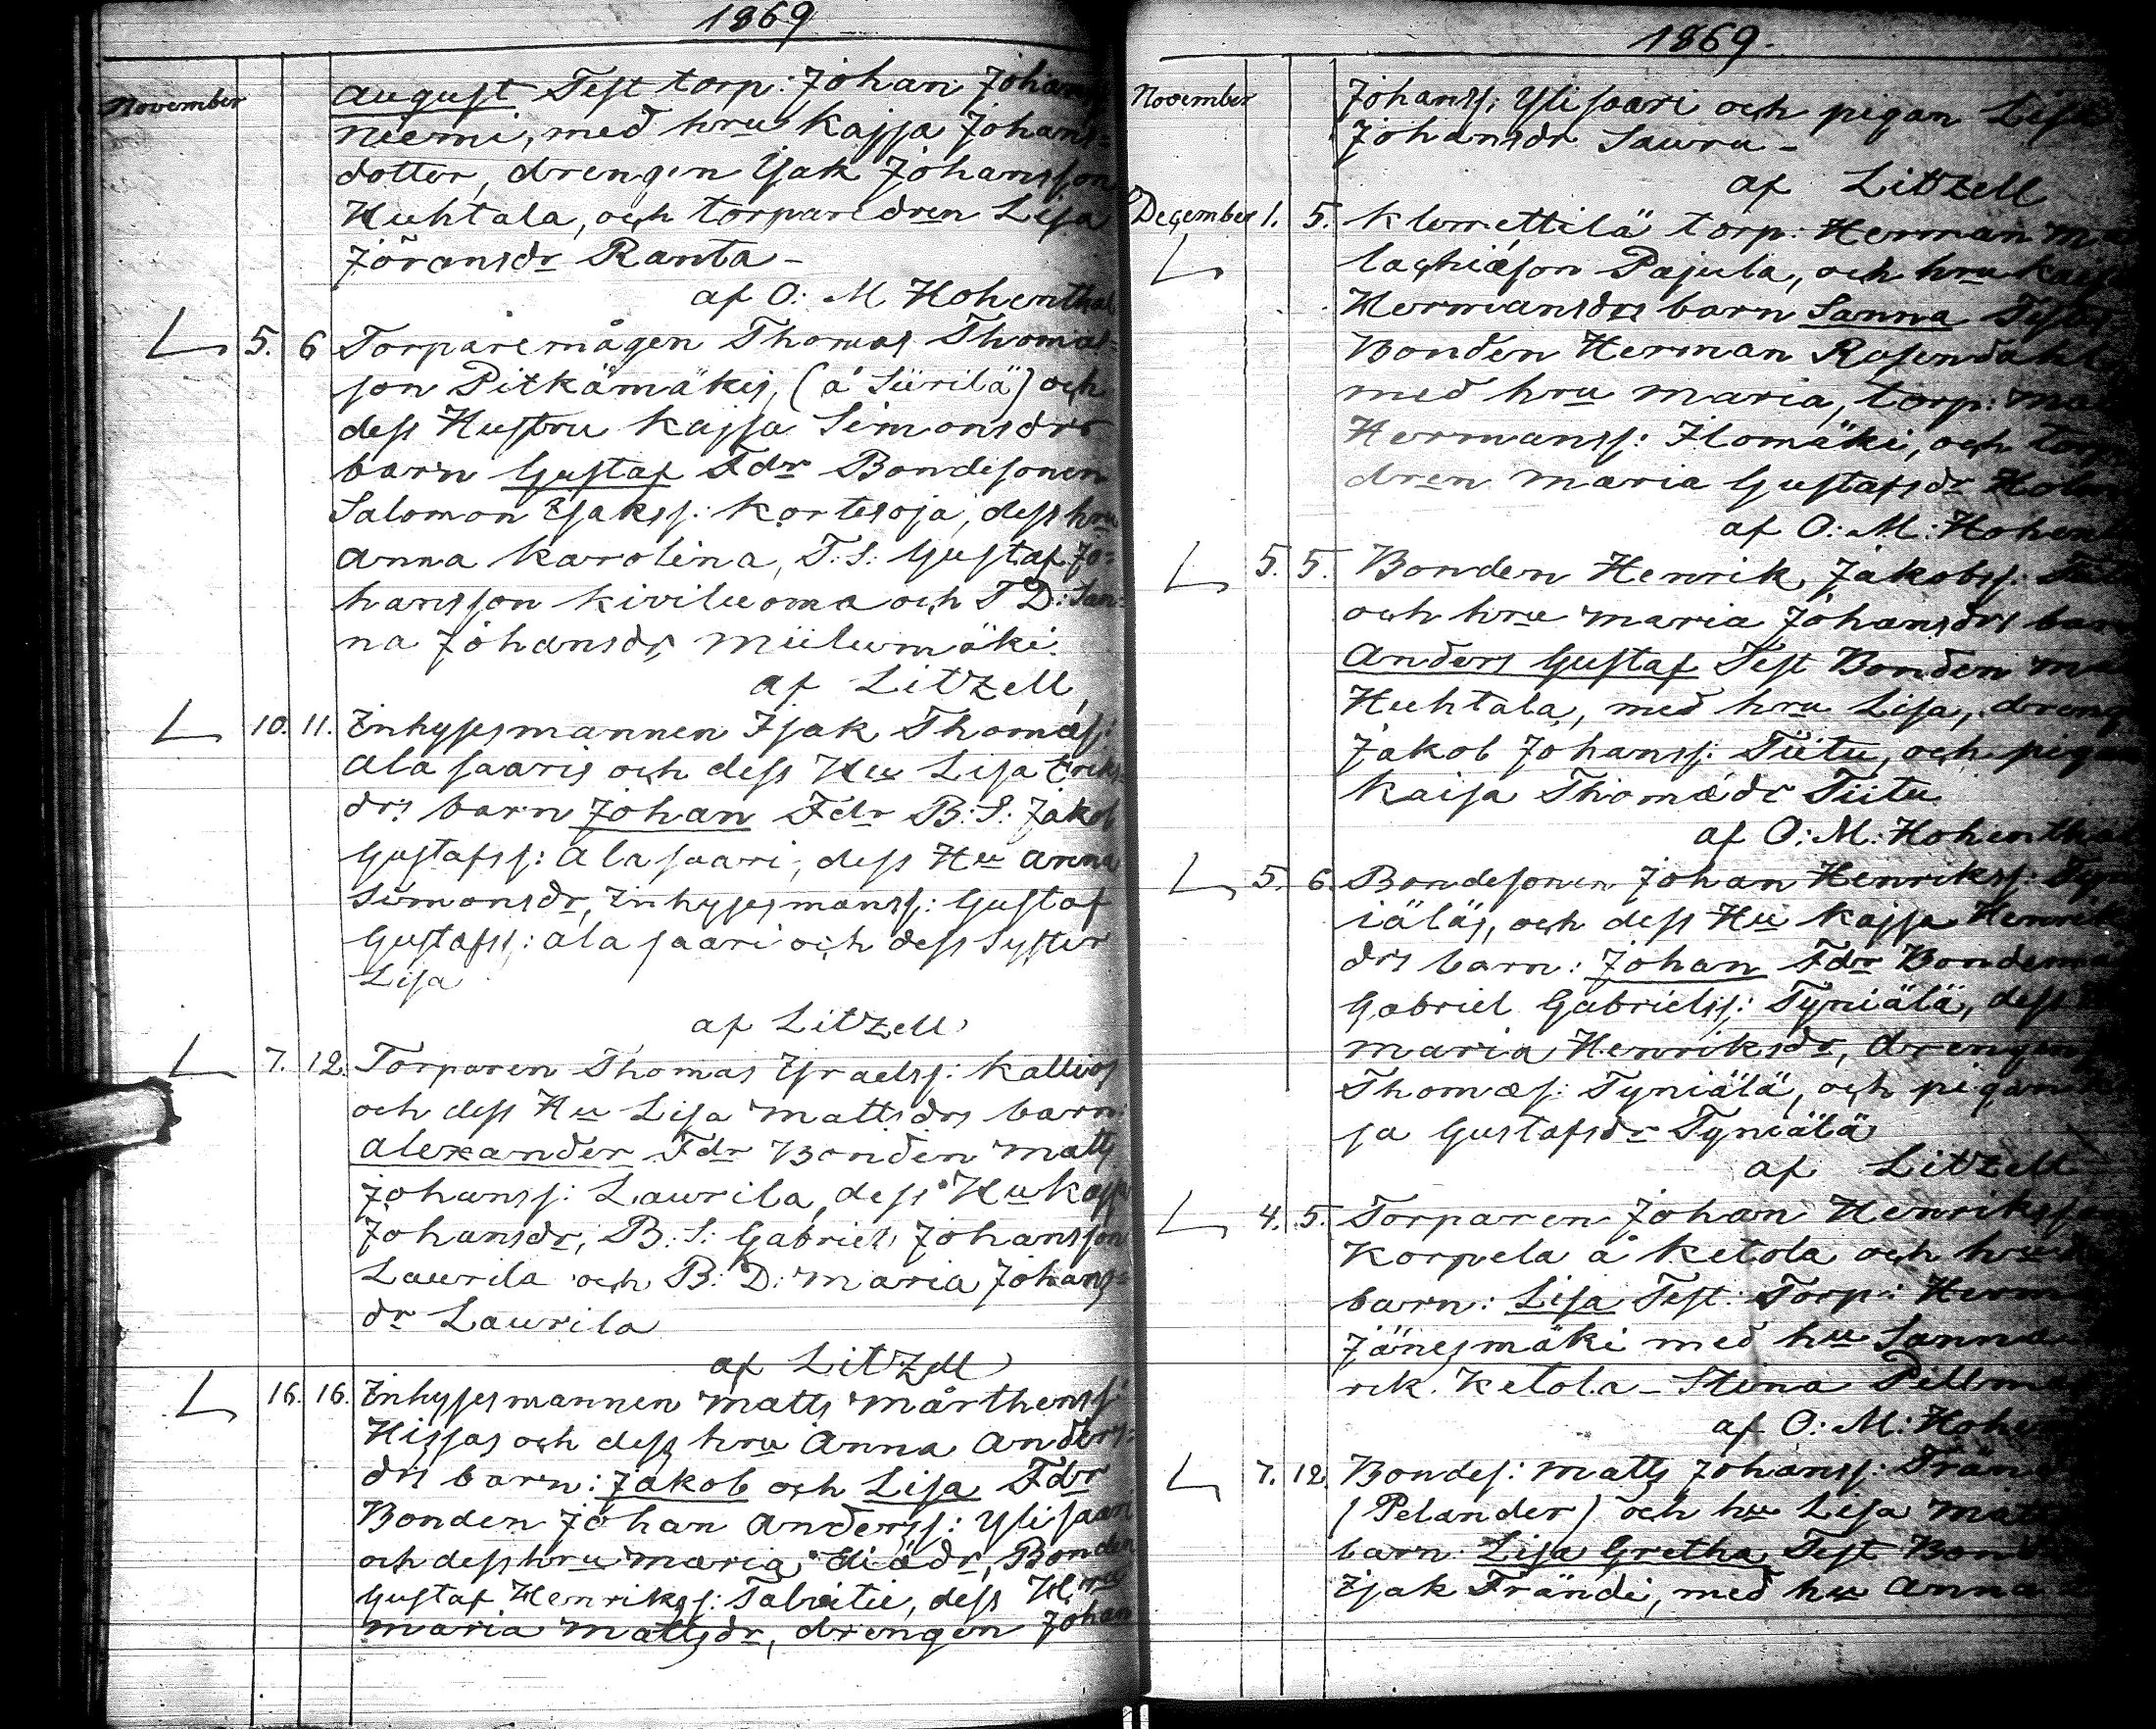 1869
November
August Test torp: Johan Johans
niemi, med hru Kajsa Johans-
dotter, drengen Isak Johansson
Huhtala, och torparedren Lisa
Jöransdr Ranta -
af O: M Hohenthal
5. 6 Torparemågen Thomas Thomas-
son Pitkämäkis, (å Siirilä) och
dess Hustru Kajsa Simonsdrs
barn Gustaf Fdr Bondesonen
Salomon Isakss: Kortesoja, dess hru
Anna Karolina, T: S: Gustaf Jo-
hansson Kiviluoma och T D: San-
na Johansdr Miilumäki.
af Litzell
10. 11. Inhysesmannen Isak Thomæs:
Alasaaris och dess Hu Lisa Eriks-
drs barn Johan Fdr B: S: Jakob
Gustafss: Alasaari, dess Hu Anna
Simonsdr, Inhysesmanss: Gustaf
Gustafss: Alasaari och dess Syster
Lisa
af Litzell
7. 12. Torparen Thomas Israelss: Kallios
och dess Hu Lisa Mattsdrs barn:
Alexander Fdr Bonden Matts
Johanss: Laurila, dess Hu Kajsa
Johansdr, B: S: Gabriel Johansson
Laurila och B: D: Maria Johans-
dr Laurila
af Litzell
16. 16. Inhysesmannen Matts Mårthenss:
Hissas och dess hru Anna Anders-
drs barn: Jakob och Lisa Fdr
Bonden Johan Anderss: Ylisaari
och dess hru Maria Eliædr, Bonden
Gustaf Henrikss: Talvitie, dess Hru
Maria Mattsdr, drengen Johan
1869.
November
Johanss: Ylisaari och pigan Lisa
Johansdr Sauru -
af Litzell
December 1. 5. Klemettilä torp: Herman Ma
lachiæson Pajula, och hru Kaisa
Hermansdrs barn Sanna Testes
Bonden Herman Rosendahl
med hru Maria, torp: Ma
Hermanss: Ilomäki, och torp
dren Maria Gustafsdr Holm
af O: M: Hohent
5. 5. Bonden Henrik Jakobss: Tiitu
och hru Maria Johansdrs barn
Anders Gustaf Test Bonden Ma
Huhtala, med hru Lisa, dreng
Jakob Johanss: Tiitu, och pigan
Kaisa Thomædr Tiitu
af O: M: Hohenthal
5. 6. Bondesonen Johan Henrikss: Tyn
iäläs, och dess Hu Kajsa Henrik
drs barn: Johan Fdr Bondem
Gabriel Gabrielss: Tyniälä, dess
Maria Henriksdr, drengen
Thomæs: Tyniälä, och pigan
sa Gustafsdr Tyniälä
af Litzell
4. 5. Torparen Johan Henriksson
Korpela å Ketola och hru
barn: Lisa Test: Torp: Herm
Jänesmäki med hu Sanna
rik. Ketola - Stina Pillm
af O: M: Hohen
7. 12. Bondes: Matts Johanss: Frän
(Pelander) och hu Lisa Matts
barn: Lisa Gretha Test Bond
Isak Frändi, med hu Anna